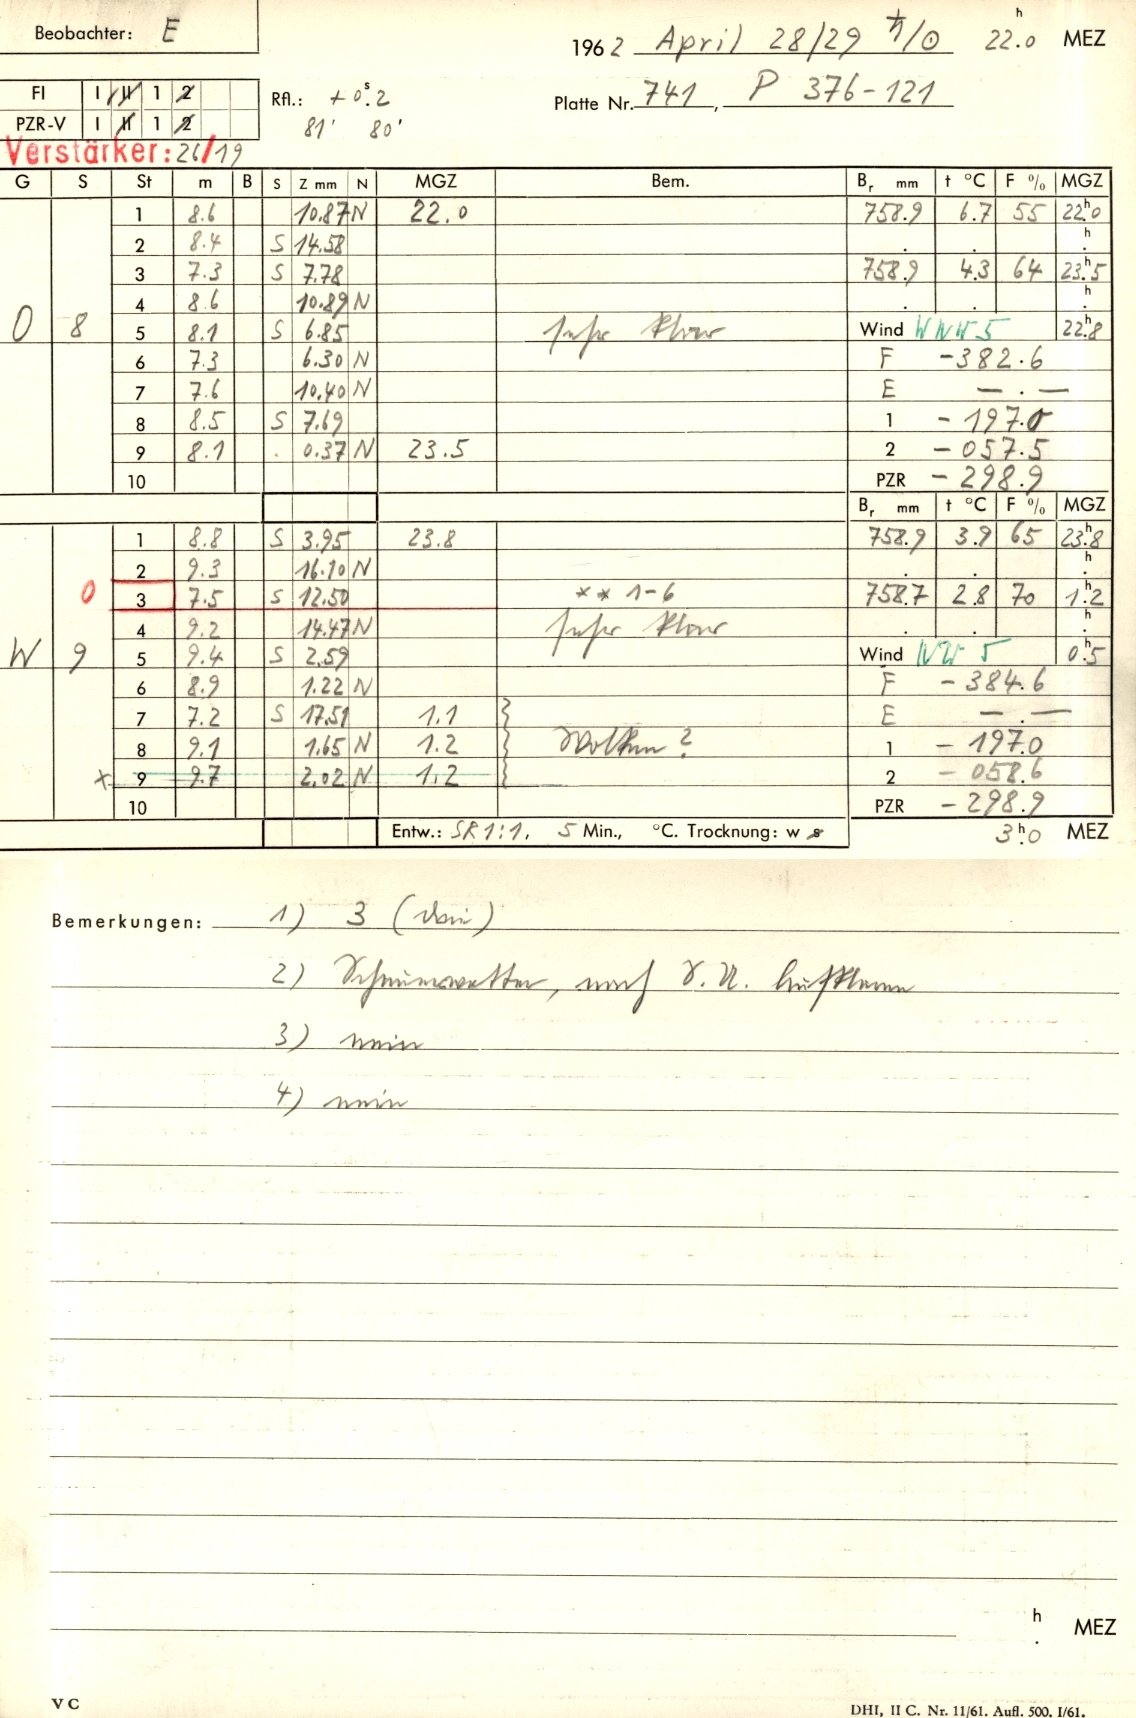 Beobachter: E
1962 April 28/29 ♄/☉ 22.h0 MEZ
FI I II 1 2
PZR-V I II 1 2
Rfl.: +0.s2
81' 80'
Platte Nr. 741, P 376-121
Verstärker: 26/19
G S St m B S Z mm N MGZ Bem. Br mm t °C F % MGZ
1 8.6 10.87 N 22.0 758.9 6.7 55 22.h0
2 8.4 S 14.58 . . h.
3 7.3 S 7.78 758.9 4.3 64 23.h5
4 8.6 10.89 N . . h.
O 8 5 8.1 S 6.85 sehr klar Wind WNW 5 22.h8
6 7.3 6.30 N F -382.6
7 7.6 10.40 N E — . —
8 8.5 S 7.69 1 -197.0
9 8.1 . 0.37 N 23.5 2 -057.5
10 PZR -298.9
Br mm t °C F % MGZ
1 8.8 S 3.95 23.8 758.9 3.9 65 23.h8
2 9.3 16.10 N . . h.
0 3 7.5 S 12.50 ** 1-6 758.7 2.8 70 1.h2
4 9.2 14.47 N sehr klar . . h.
W 9 5 9.4 S 2.59 Wind NW 5 0.h5
6 8.9 1.22 N F -384.6
7 7.2 S 17.51 1.1 } E — . —
8 9.1 1.65 N 1.2 } Wolken? 1 -197.0
x 9 9.7 2.02 N 1.2 } 2 -058.6
10 PZR -298.9
Entw.: SR 1:1, 5 Min., °C. Trocknung: w s 3.h0 MEZ
Bemerkungen: 1) 3
2) Schauerwetter, nach S.U. aufklaren
3) nein
4) nein
h. MEZ
V C
DHI, II C. Nr. 11/61. Aufl. 500. I/61.